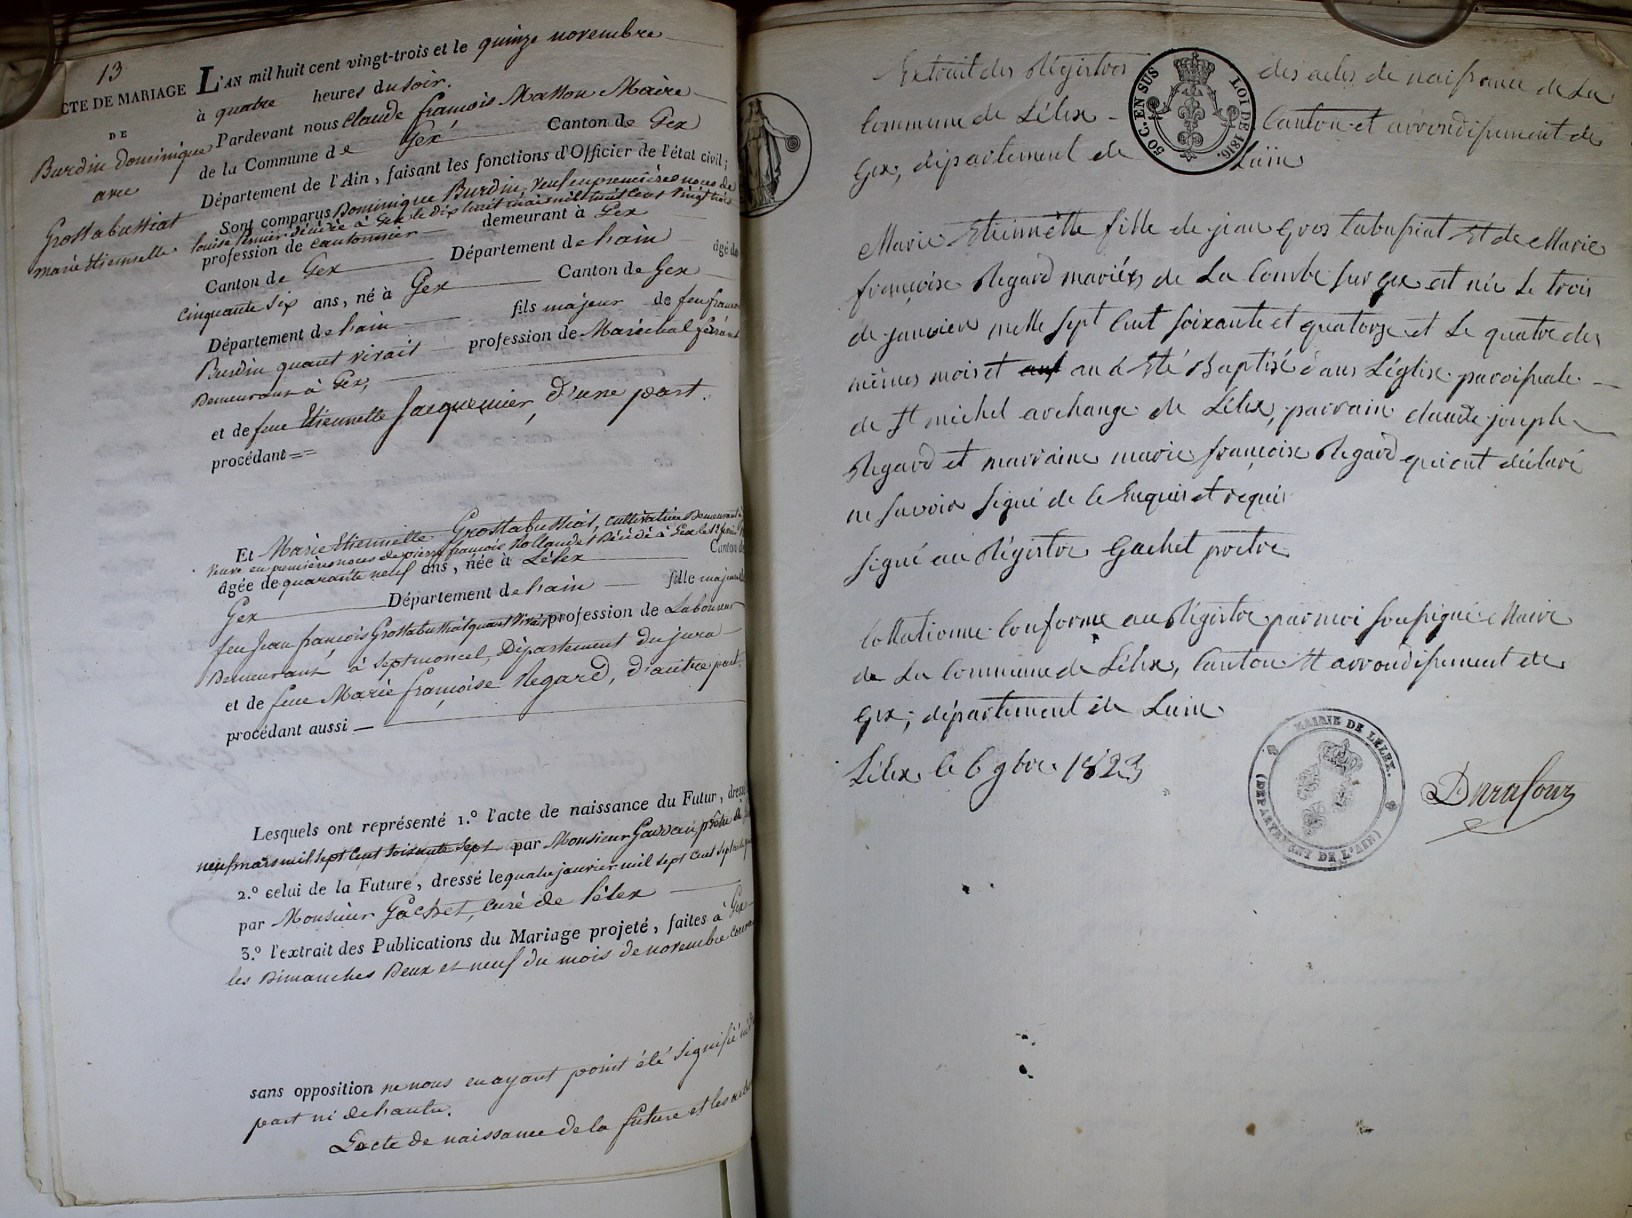 13
CTE DE MARIAGE
DE
Burdin dominique
avec
Grostabussiat
marie Etiennette
L'AN mil huit cent vingt-trois et le quinze novembre
à quatre heures du soir.
Pardevant nous Claude françois Maire
de la Commune de Gex Canton de Gex
Département de l'Ain, faisant les fonctions d'Officier de l'état civil;
Sont comparus Dominique Burdin, veuf en premières noces de
louise décédée à Gex le dix huit mars mil huit cent vingt trois
profession de cantonnier demeurant à Gex
Canton de Gex Département de l'ain âgé de
cinquante six ans, né à Gex Canton de Gex
Département de l'ain fils majeur de feu françois
Burdin quant vivait profession de Maréchal ferrant
Demeurant à Gex,
et de feue Etiennette Jacquenier, d'une part.
procédant
Et Marie Etiennette Grostabussiat, cultivatrice Demeurant à
veuve en premières noces de pierre françois Rollandet Décédé à Gex le
âgée de quarante neuf ans, née à Lélex Canton de
Gex Département de l'ain fille majeure de
feu Jean françois Grostabussiat quant vivait profession de Laboureur
Demeurant à Septmoncel, Département du jura
et de feue Marie françoise Regard, d'autre part.
procédant aussi
Lesquels ont représenté 1.° l'acte de naissance du Futur, dressé
neuf mars mil sept cent soixante sept par Monsieur prêtre
2.° celui de la Future, dressé le quatre janvier mil sept cent septante
par Monsieur Gachet, curé de lélex
3.° l'extrait des Publications du Mariage projeté, faites à Gex
les Dimanches Deux et neuf du mois de novembre courant
sans opposition ne nous en ayant point été signifié
part ni de l'autre.
L'acte de naissance de la future et les
Extrait des Régistres des actes de naissance de La
Commune de Lélex - Canton et arrondissement de
Gex, département de Lain
50 C. EN SUS
LOI DE 1816.
Marie Etiennette fille de jean Gros tabussiat Et de Marie
françoise Regard mariés de La Combe sur gex est née Le trois
de janvier mille sept Cent soixante et quatorze et Le quatre des
mêmes mois et an a été Baptisé dans L'église paroissiale
de St michel archange de Lélex, parrain claude joseph
Regard et marraine marie françoise Regard qui ont déclaré
ne savoir signé de ce Enquis et requis
signé au Régistre Gachet pretre
Collationné Conforme au Régistre par moi soussigné Maire
de La Commune de Lélex, Canton Et arrondissement de
Gex, département de Lain
Lélex le 6 9bre 1823
MAIRIE DE LÉLEX.
(DÉPARTEMENT DE L'AIN)
Durafour